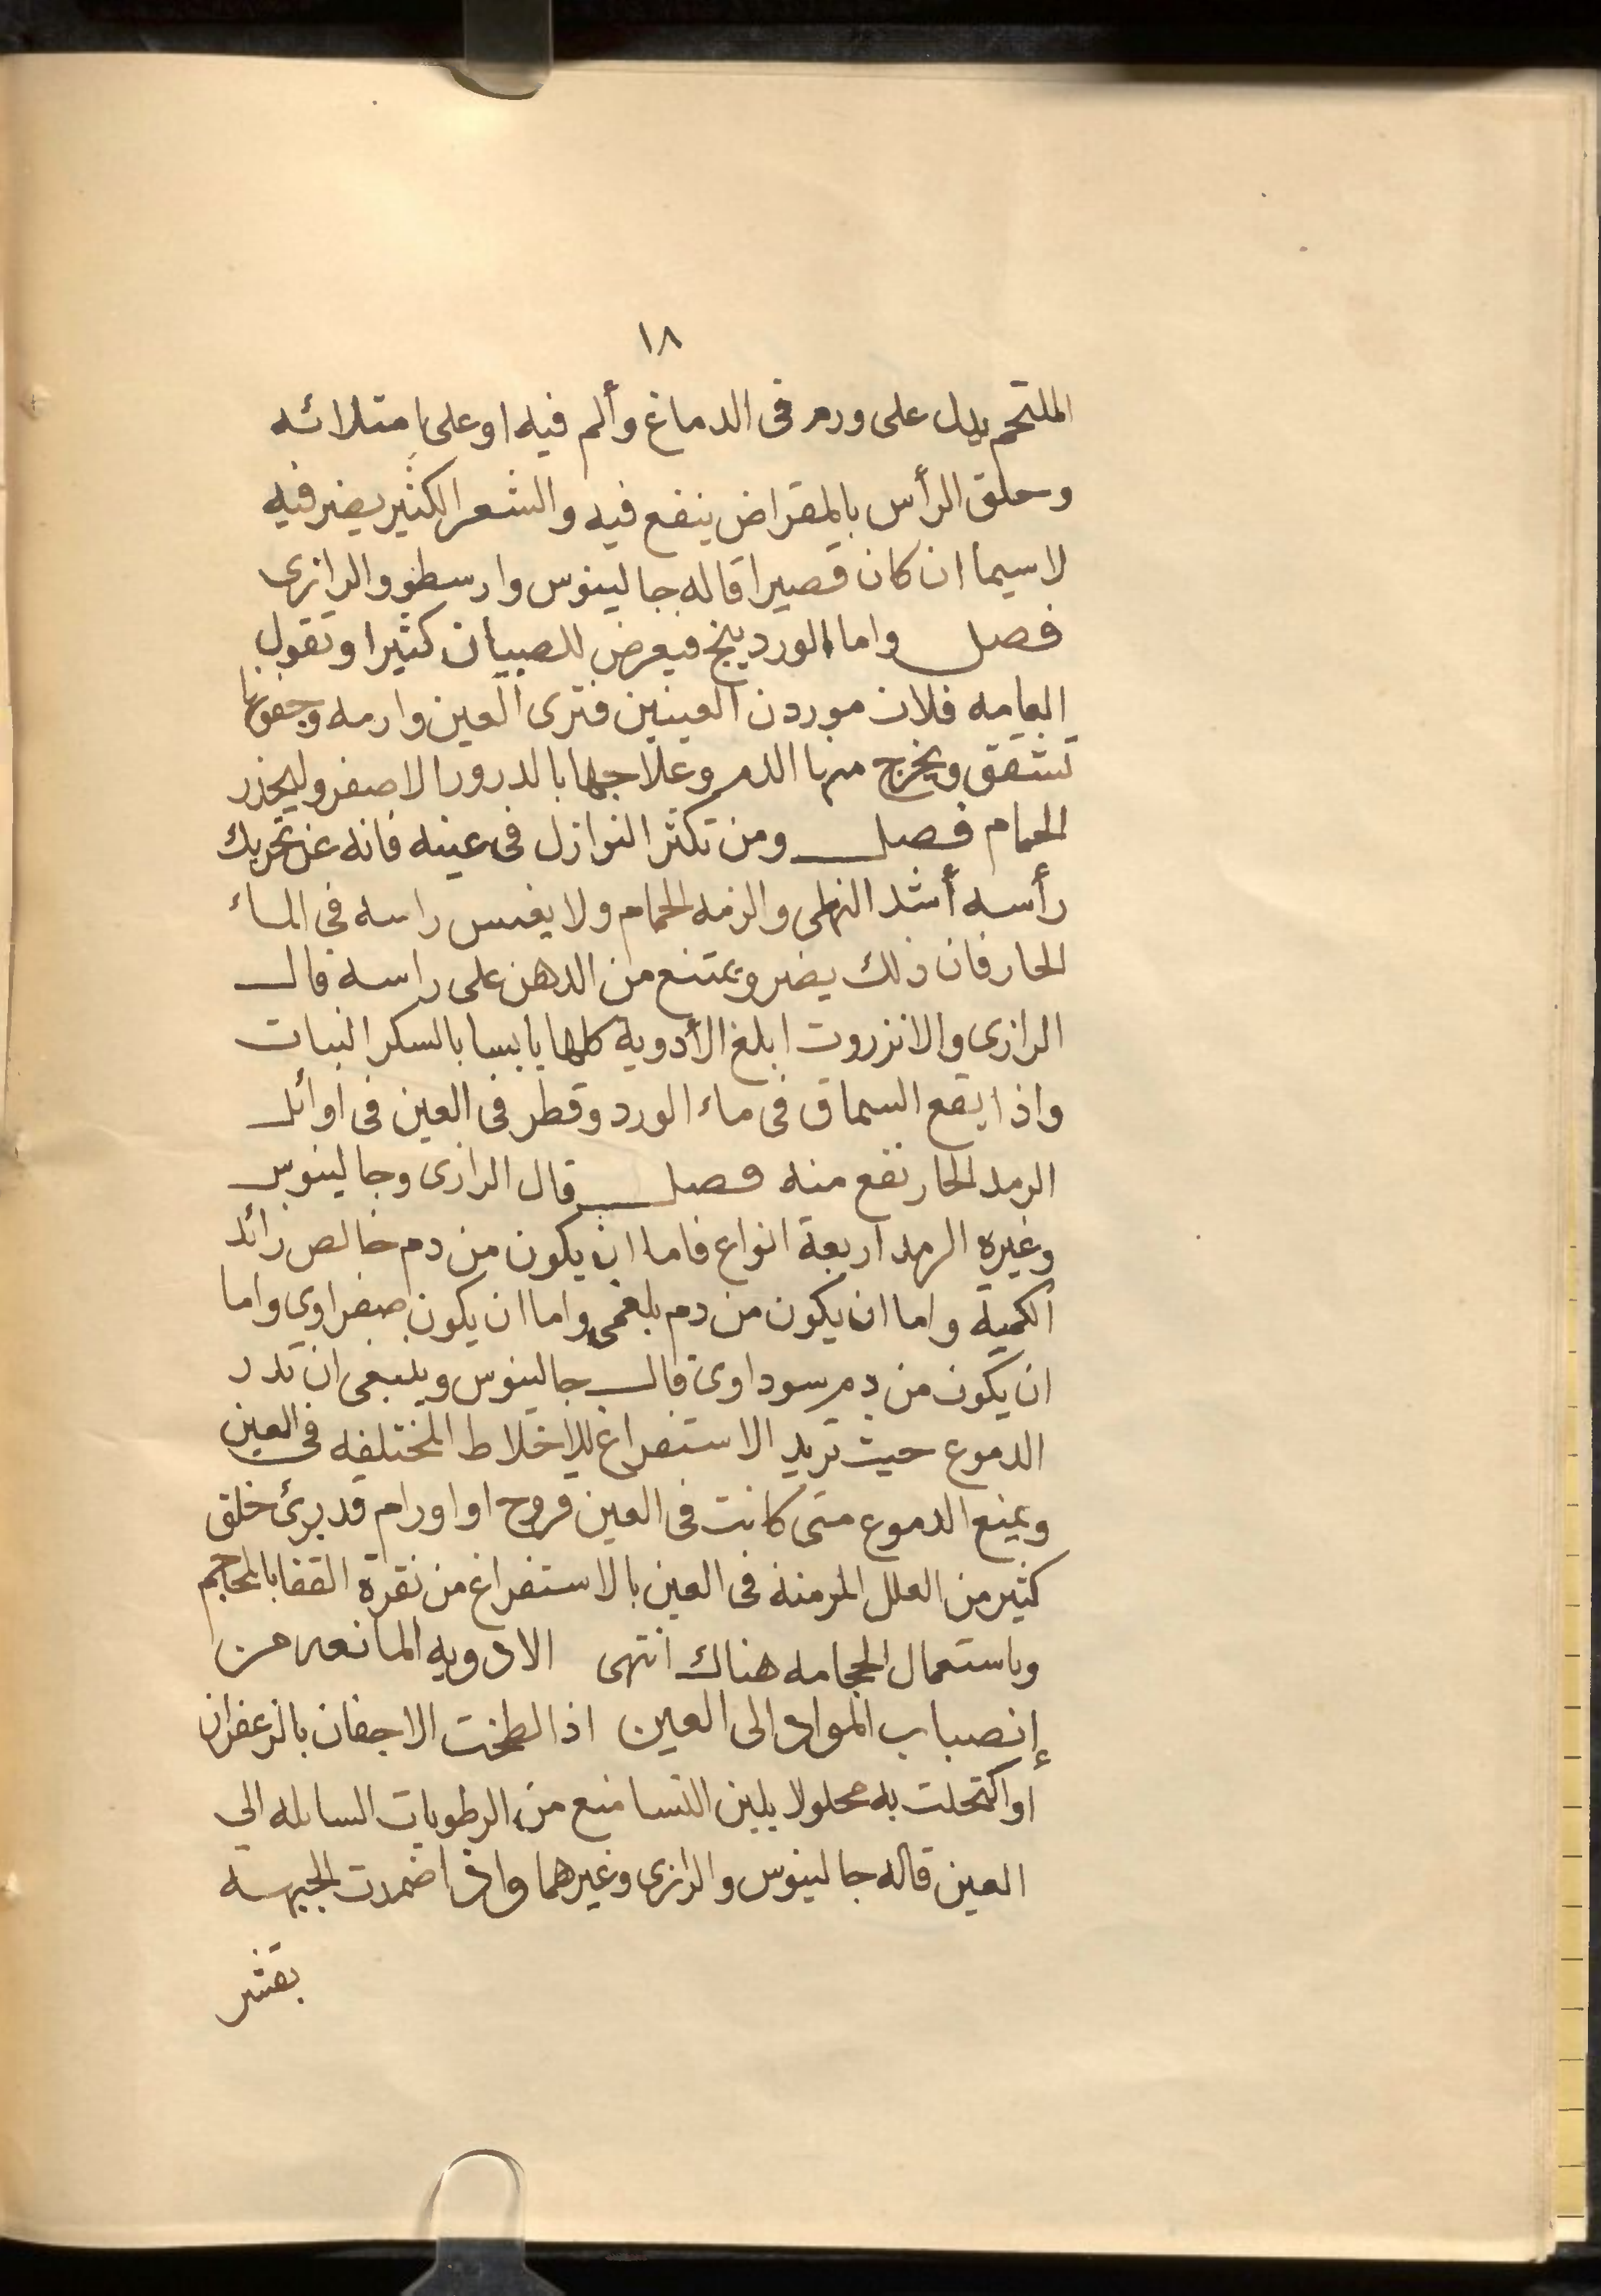 ١٨
الملتحم يدل على ورم فى الدماغ وألم فيه او على امتلائه
وحلق الرأس بالمقراض ينفع فيه والشعر الكثير يضر فيه
لاسيما ان كان قصيرا قاله جالينوس وارسطو والرازى
فصل واما الوردينج فيعرض للصبيان كثيرا وتقول
العامه فلان موردن العينين فترى العين وارمه وجفونها
تشقق ويخرج منها الدم وعلاجها بالدرور الاصفر وليحذر
الحمام فصل ومن تكثر النوازل فى عينه فانه عن تحريك
رأسه أشد النهى والزمه الحمام ولا يغمس راسه فى الماء
الحار فان ذلك يضر ويمتنع من الدهن على راسه قال
الرازى والانزروت ابلغ الأدوية كلها يابسا بالسكر النبات
واذا يقع السماق فى ماء الورد وقطر فى العين فى اوائل
الرمد الحار نفع منه فصل قال الرازى وجالينوس
وغيره الرمد اربعة انواع فاما ان يكون من دم خالص زائد
الكمية واما ان يكون من دم بلغمى واما ان يكون صفراوى واما
ان يكون من دم سوداوى قال جالينوس وينبغى ان تدر
الدموع حيث تريد الاستفراغ للاخلاط المختلفه فى العين
ويمنع الدموع متى كانت فى العين قروح او اورام قد برئ خلق
كثير من العلل المزمنة فى العين بالاستفراغ من نقرة القفا بالمحاجم
وباستعمال الحجامه هناك انتهى الادويه المانعه من
إنصباب المواد الى العين اذا لطخت الاجفان بالزعفران
او اكتحلت به محلولا بلبن النسا منع من الرطوبات السايله الى
العين قاله جالينوس والرازى وغيرهما واذا ضمدت الجبهة
بقشر